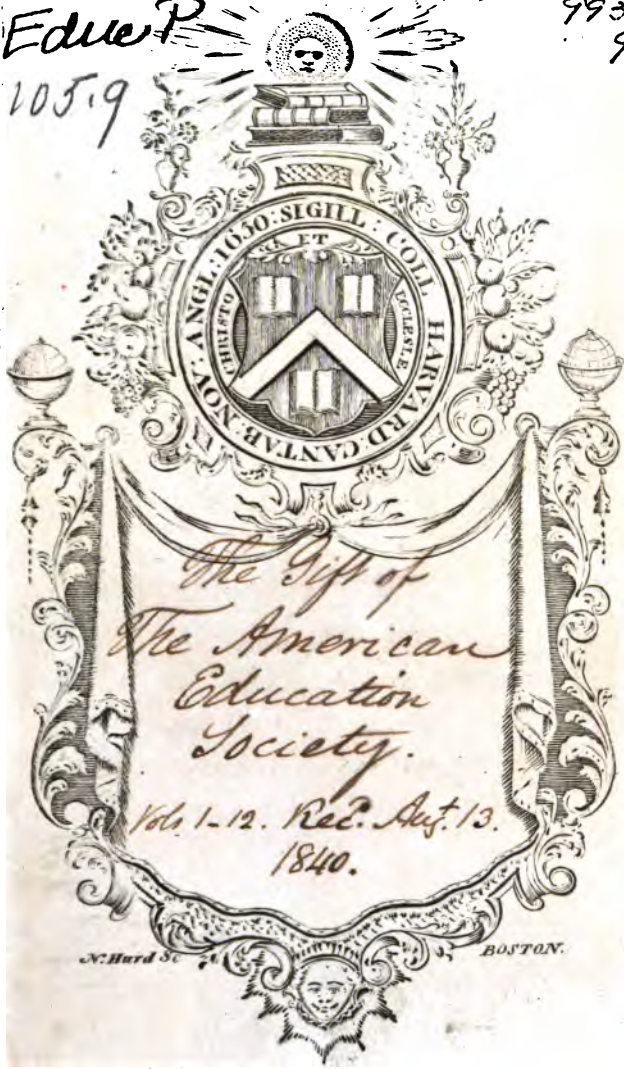 Educ P
993
9
105.9
SIGILL: COLL HARVARD: CANTAB: NOV: ANGL: 1650:
CHRISTO ET ECCLESIÆ
The Gift of
The American
Education
Society.
Vols. 1-12. Rec.d Aug.t 13.
1840.
N. Hurd Sc
BOSTON.